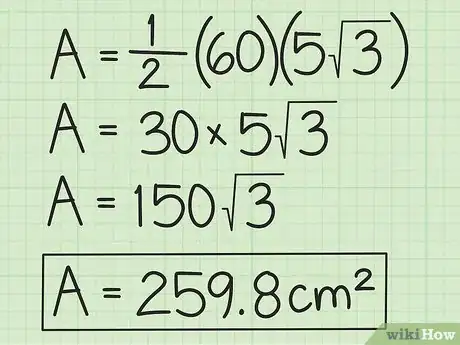 A = 1/2 (60)(5√3)
A = 30 × 5√3
A = 150√3
A = 259.8cm²
wikiHow